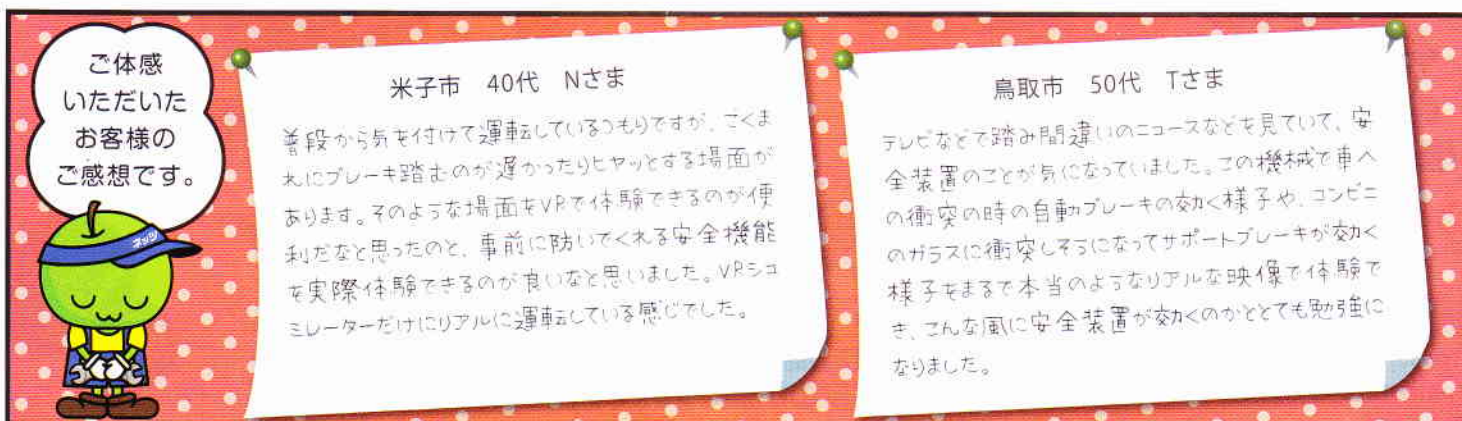 ご体感
いただいた
お客様の
ご感想です。
ネッツ
米子市 40代 Nさま
普段から気を付けて運転しているつもりですが、ごくま
れにブレーキ踏むのが遅かったりヒヤッとする場面が
あります。そのような場面をVRで体験できるのが便
利だなと思ったのと、事前に防いでくれる安全機能
を実際体験できるのが良いなと思いました。VRシュ
ミレーターだけにリアルに運転している感じでした。
鳥取市 50代 Tさま
テレビなどで踏み間違いのニュースなどを見ていて、安
全装置のことが気になっていました。この機械で車へ
の衝突の時の自動ブレーキの効く様子や、コンビニ
のガラスに衝突しそうになってサポートブレーキが効く
様子をまるで本当のようなリアルな映像で体験で
き、こんな風に安全装置が効くのかととても勉強に
なりました。